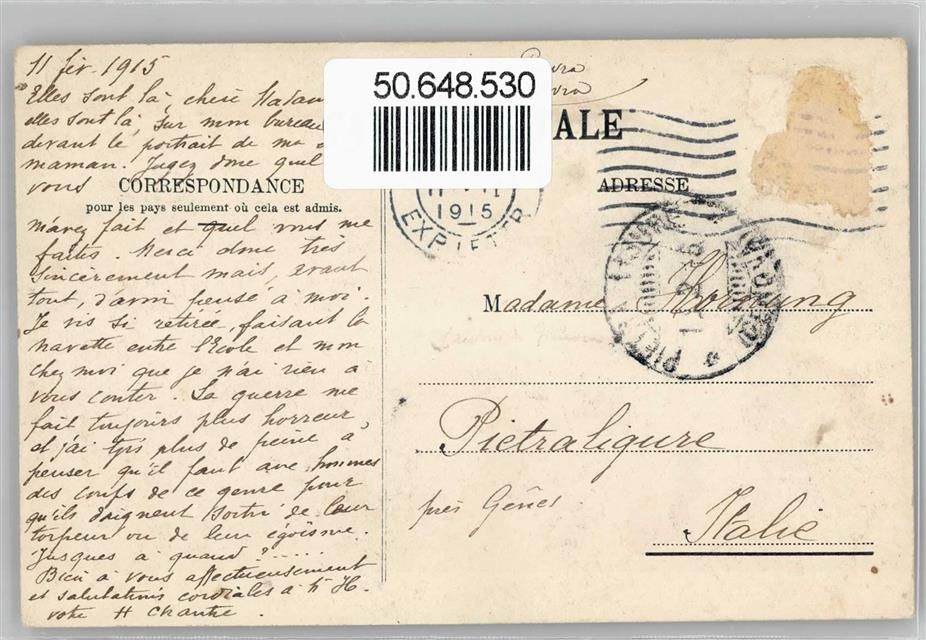 11 fév. 1915
Elles sont là, chère Madam
elles sont là, sur mon bureau
devant le portrait de ma
maman. Jugez donc quel
vous
CORRESPONDANCE
pour les pays seulement où cela est admis.
m'avez fait et quel vous me
faites. Merci donc très
sincèrement mais, avant
tout, d'avoir pensé à moi.
Je vis si retirée, faisant la
navette entre l'Ecole et mon
chez moi que je n'ai rien à
vous conter. La guerre me
fait toujours plus horreur,
et j'ai tjs plus de peine à
penser qu'il faut aux hommes
des coups de ce genre pour
qu'ils daignent sortir de leur
torpeur ou de leur égoïsme.
Jusques à quand ?......
Bien à vous affectueusement
et salutations cordiales à Mr H.
votre H Chantre.
50.648.530
ALE
ADRESSE
1915
EXP LETTR
PIETRA LIGURE
Madame Hornung
Pietraligure
près Gênes.
Italie